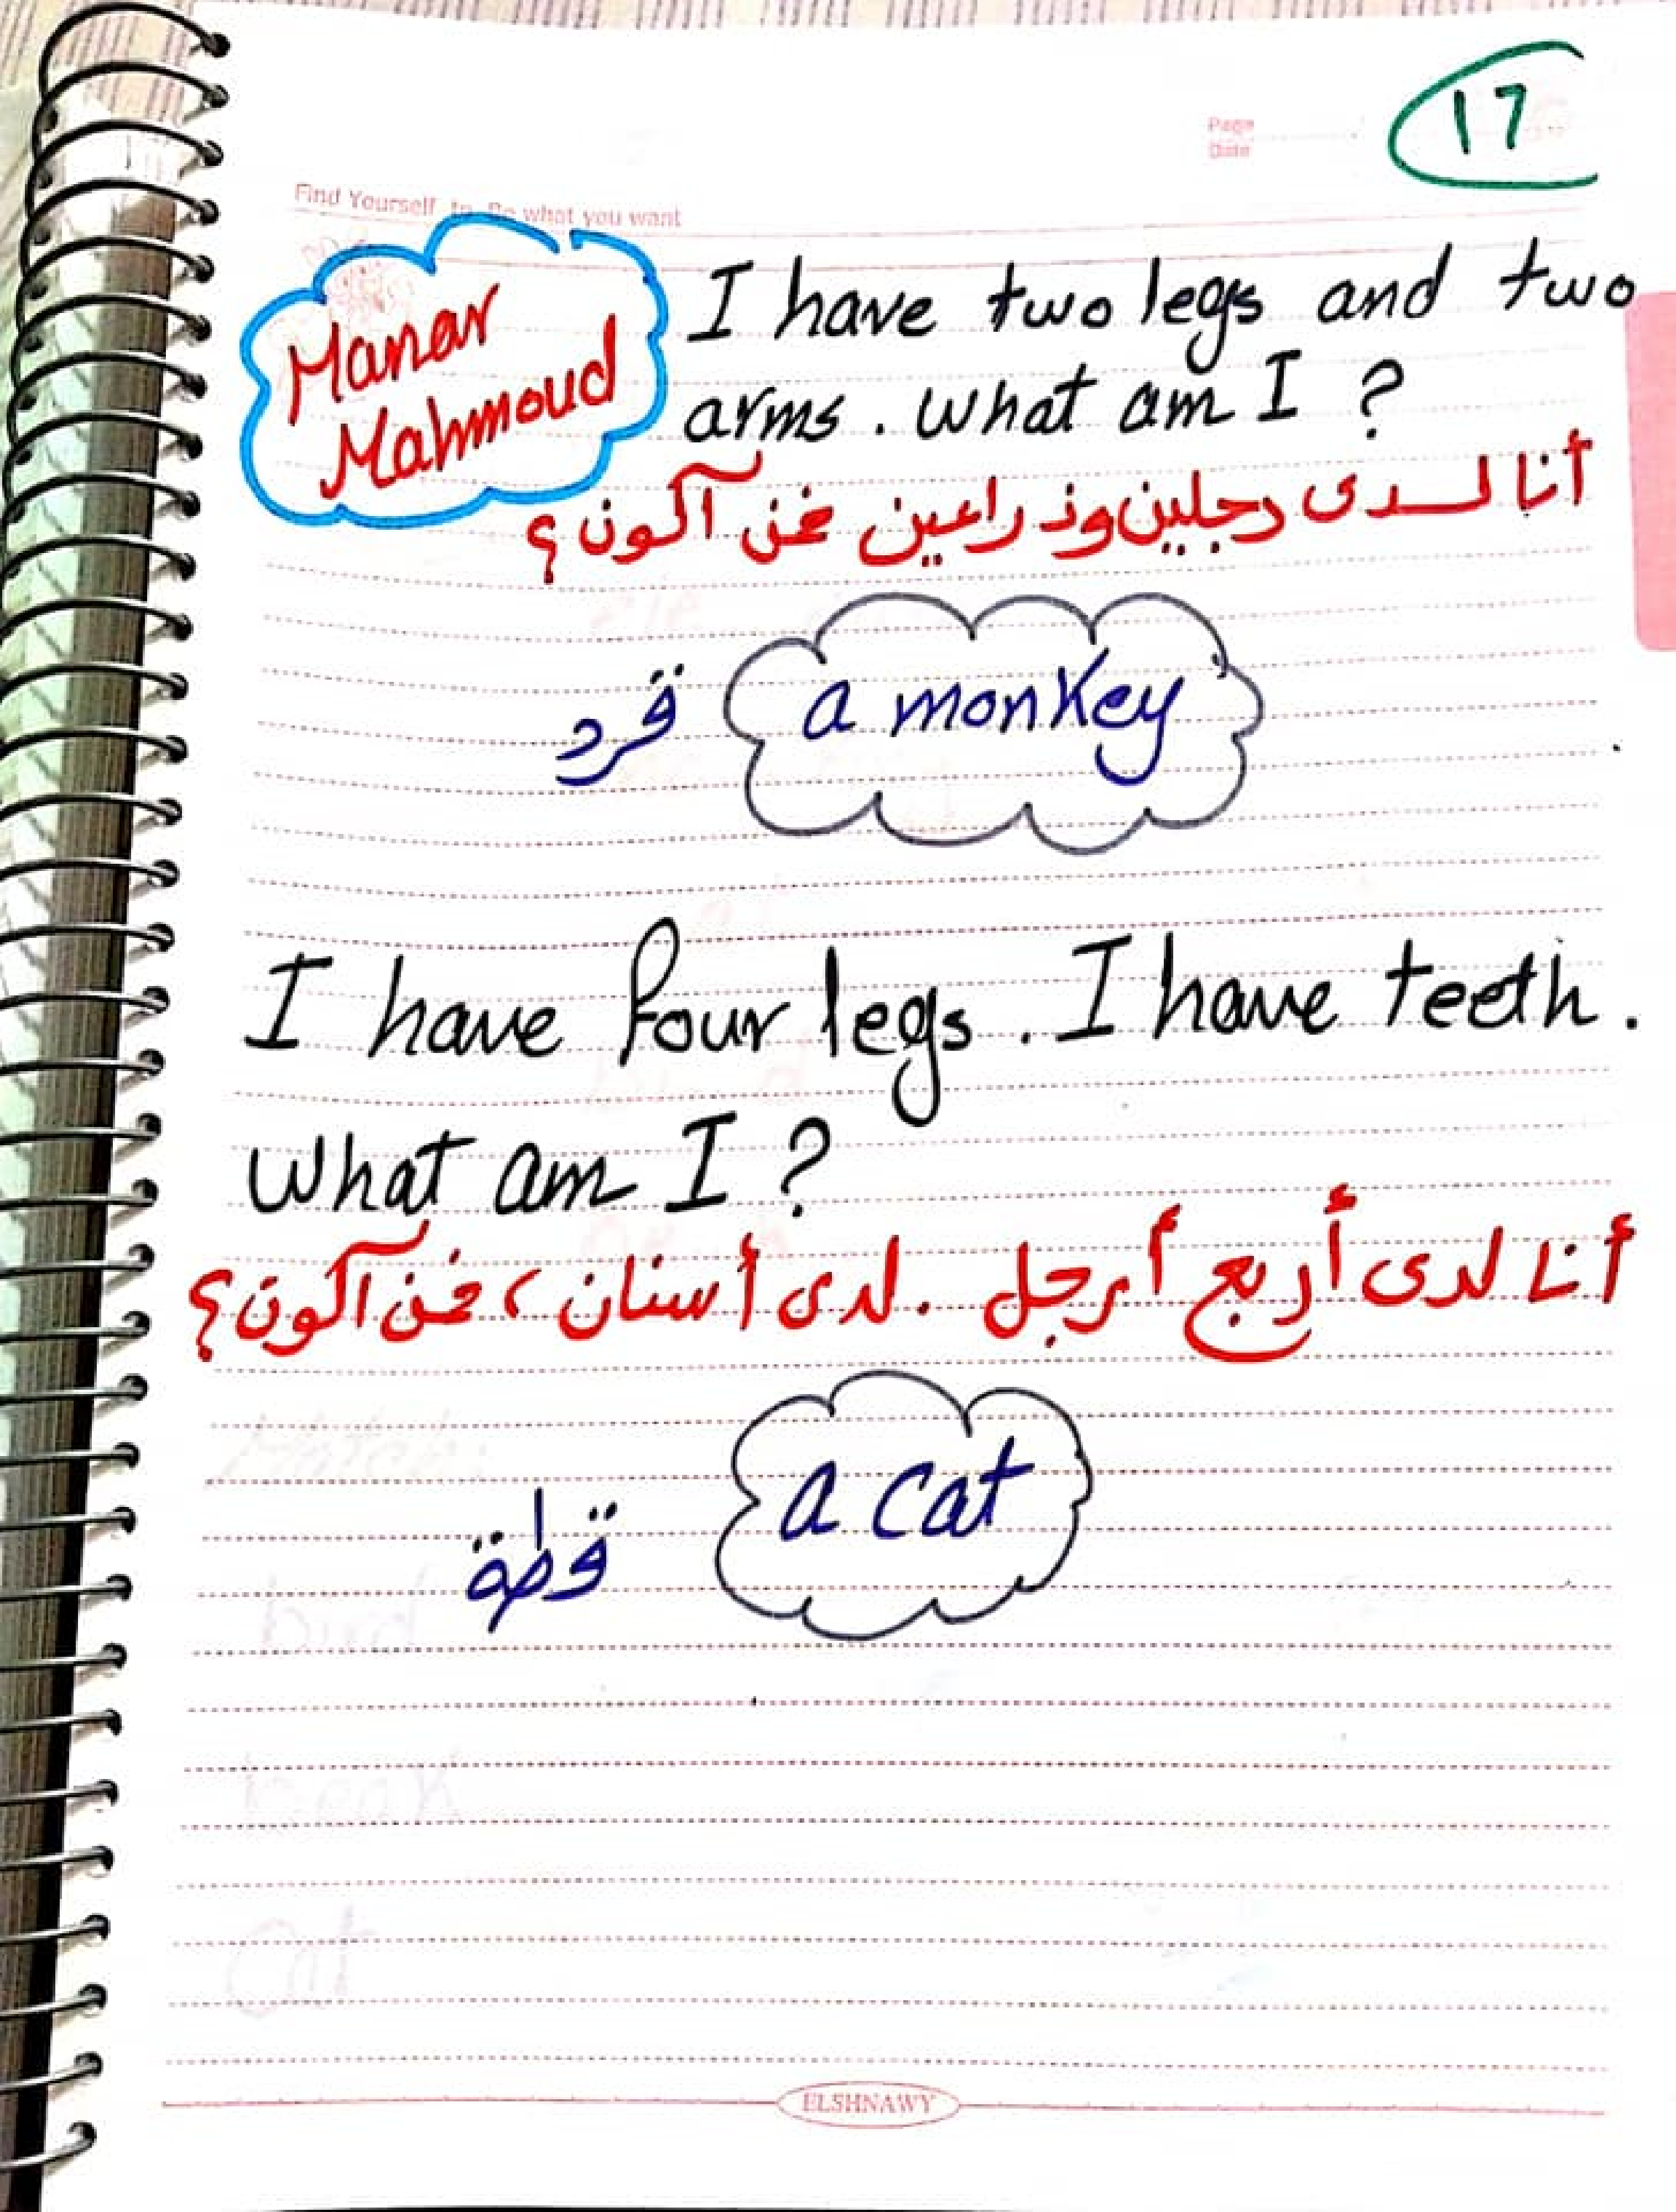 17
Page
Date
Find Yourself In Be what you want
Manar
Mahmoud
I have two legs and two
arms. What am I ?
أنا لدى رجلين وذراعين فمن أكون ؟
a monkey قرد
I have four legs. I have teeth.
What am I ?
أنا لدى أربع أرجل . لدى أسنان ، فمن أكون ؟
a cat قطة
ELSHNAWY